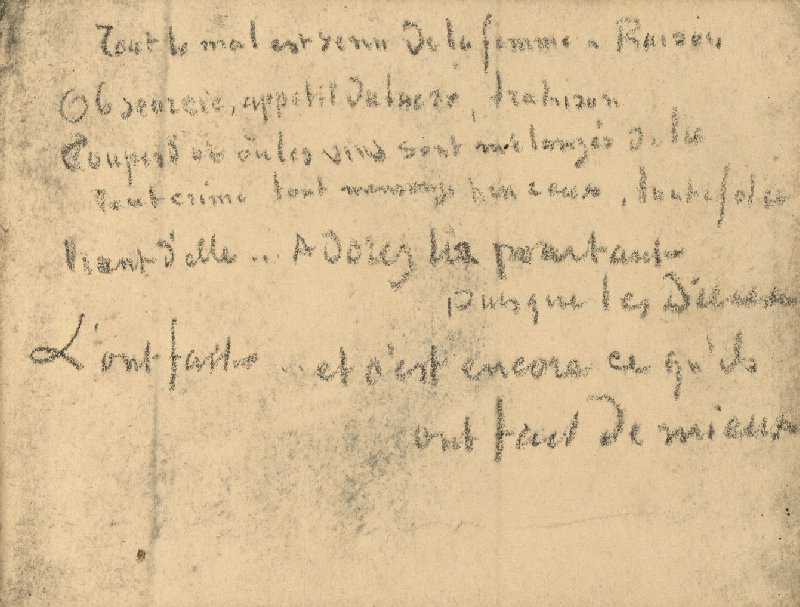 Tout le mal est venu de la femme - Raison
Obscurcie, appétit du lucre, trahison
Coupes d'or où les vins sont mélangés de lie
Tout crime tout mensonge heureux, toute folie
Vient d'elle ... Adorez la pourtant
puisque les Dieux
L'ont faite ... et c'est encore ce qu'ils
ont fait de mieux